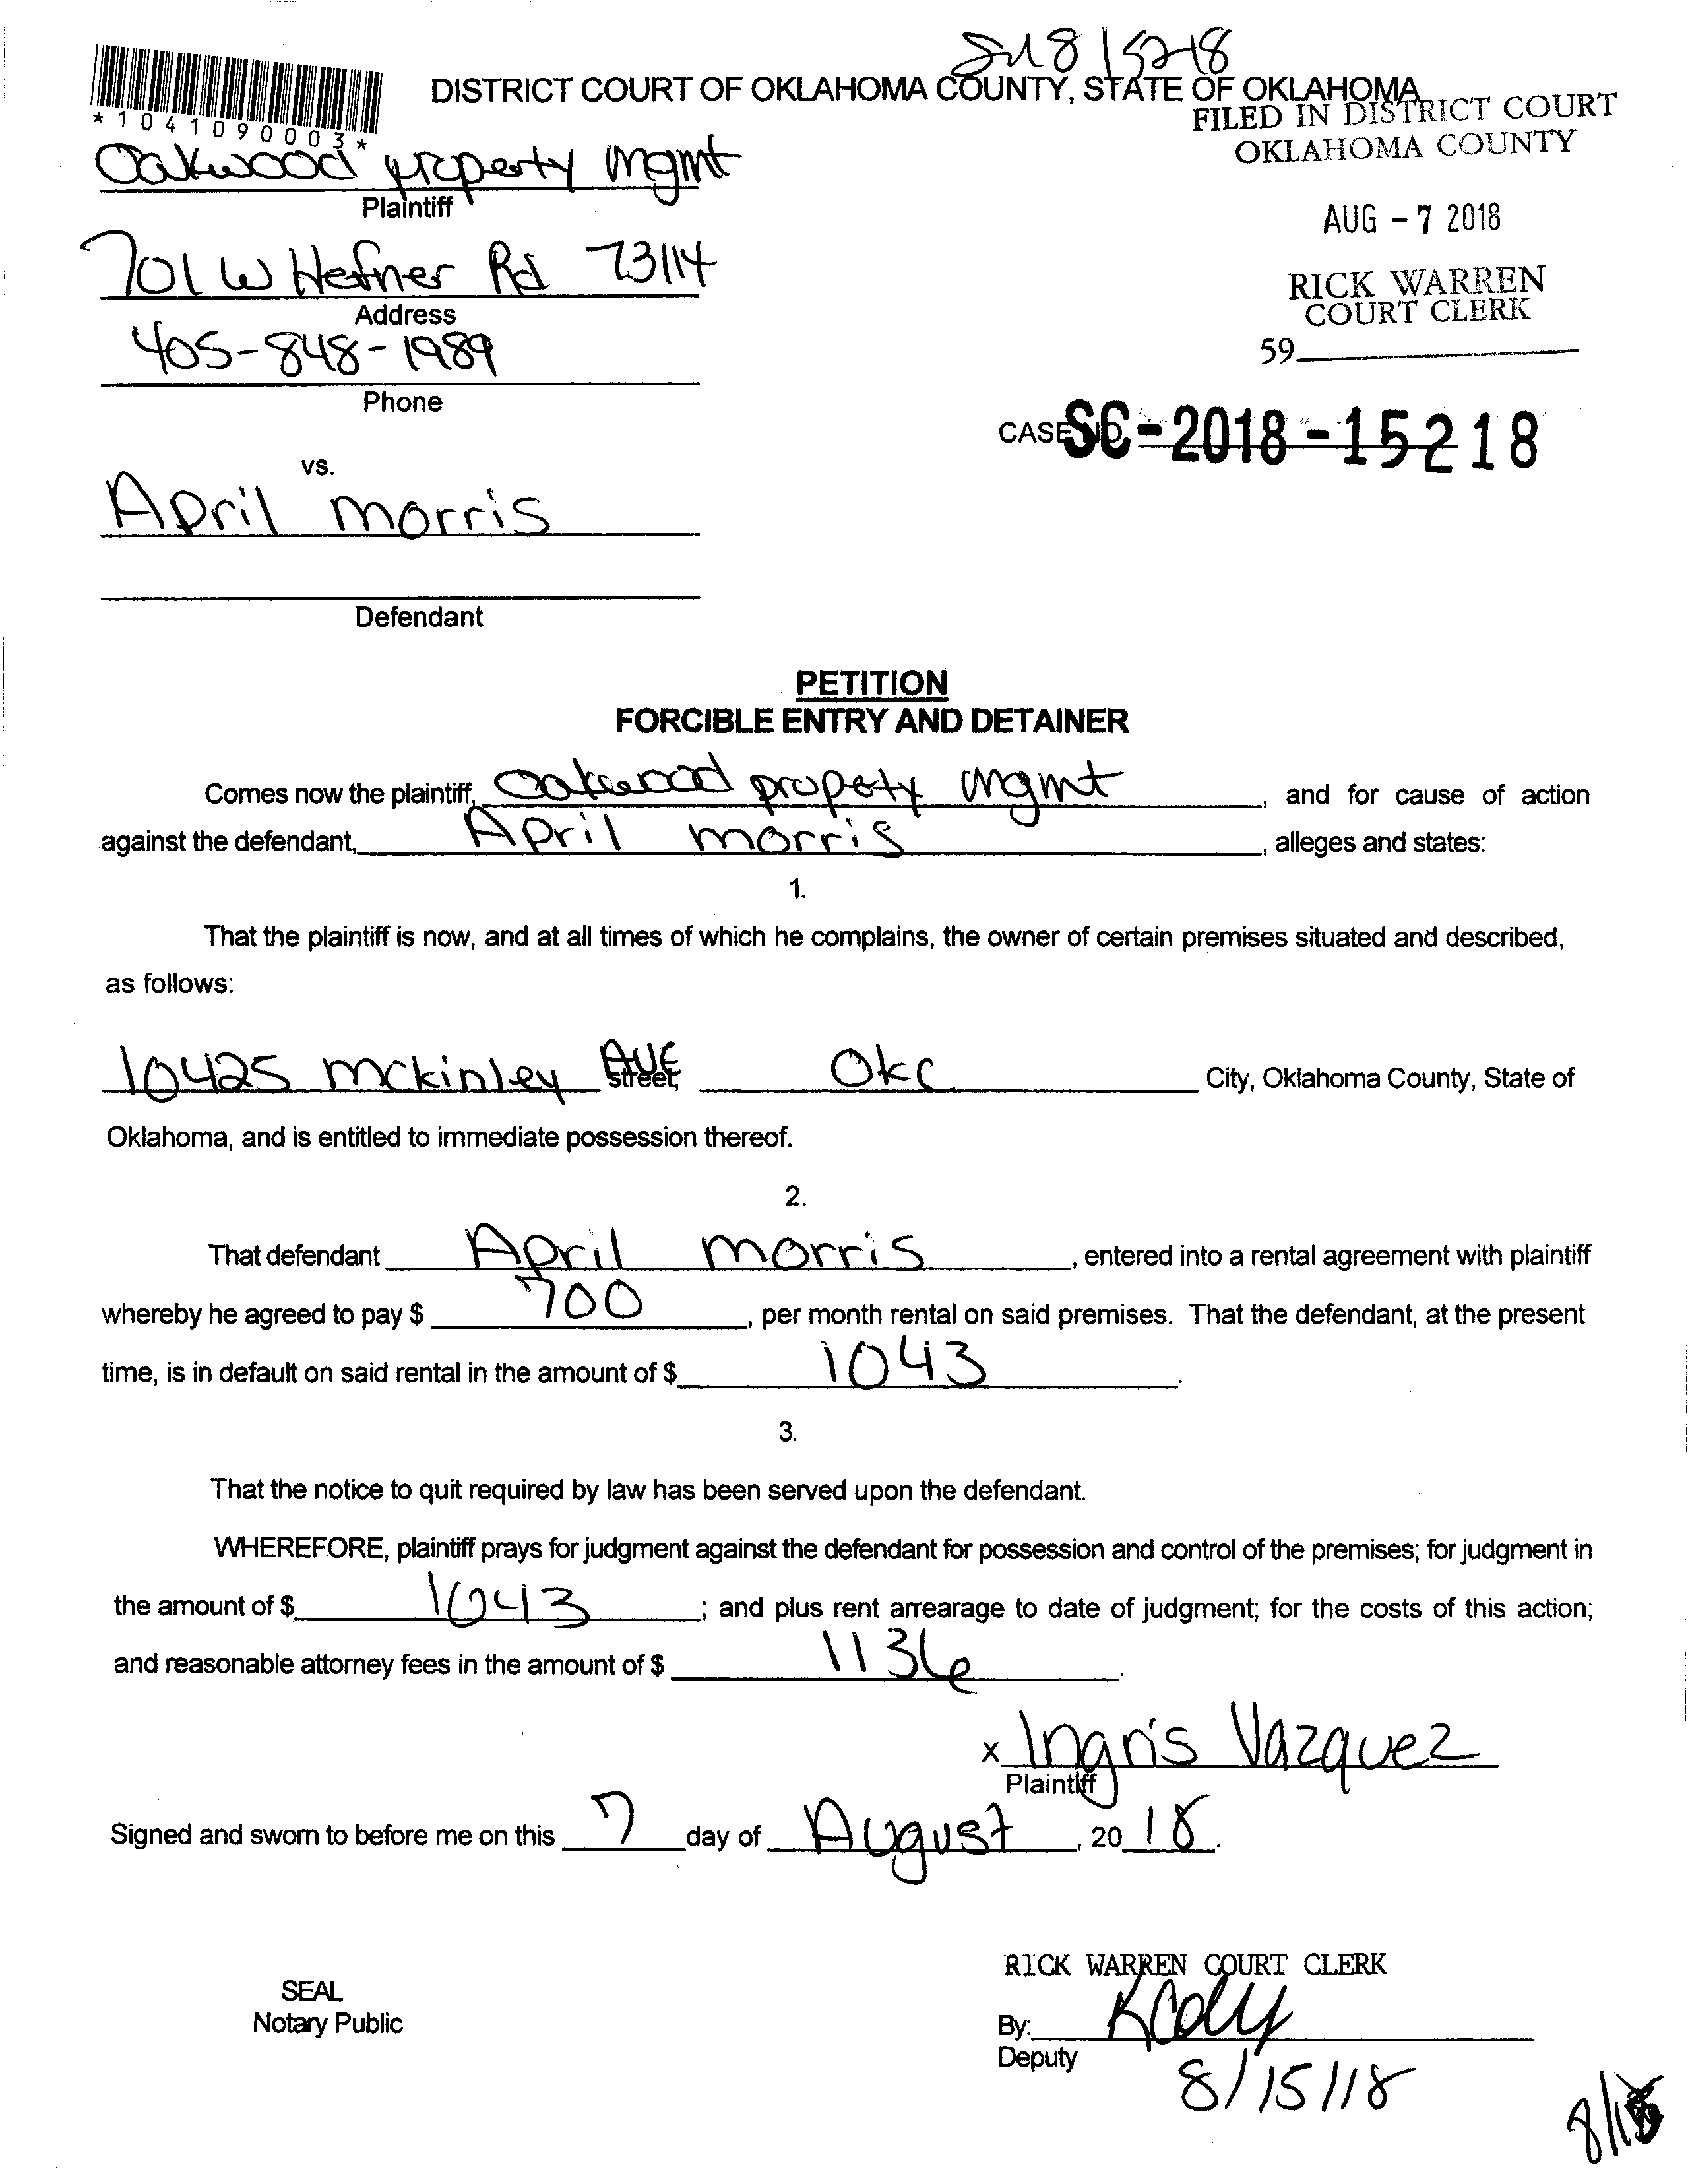 DISTRICT COURT OF OKLAHOMA COUNTY, STATE OF OKLAHOMA
*1041090003*
FILED IN DISTRICT COURT
OKLAHOMA COUNTY
Oakwood property mgmt
Plaintiff
AUG - 7 2018
701 W Hefner Rd 73114
Address
RICK WARREN
COURT CLERK
405-848-1989
59
Phone
CASE NO. SC-2018-15218
vs.
April morris
Defendant
PETITION
FORCIBLE ENTRY AND DETAINER
Comes now the plaintiff, Oakwood propety mgmt, and for cause of action
against the defendant, April morris, alleges and states:
1.
That the plaintiff is now, and at all times of which he complains, the owner of certain premises situated and described,
as follows:
10425 mckinley AVE Street, OKC City, Oklahoma County, State of
Oklahoma, and is entitled to immediate possession thereof.
2.
That defendant April morris, entered into a rental agreement with plaintiff
whereby he agreed to pay $ 700, per month rental on said premises. That the defendant, at the present
time, is in default on said rental in the amount of $ 1043.
3.
That the notice to quit required by law has been served upon the defendant.
WHEREFORE, plaintiff prays for judgment against the defendant for possession and control of the premises; for judgment in
the amount of $ 1043; and plus rent arrearage to date of judgment; for the costs of this action;
and reasonable attorney fees in the amount of $ 1136.
x Ingris Vazquez
Plaintiff
Signed and sworn to before me on this 7 day of August, 2018.
RICK WARREN COURT CLERK
SEAL
Notary Public
By:
Deputy
8/15/18